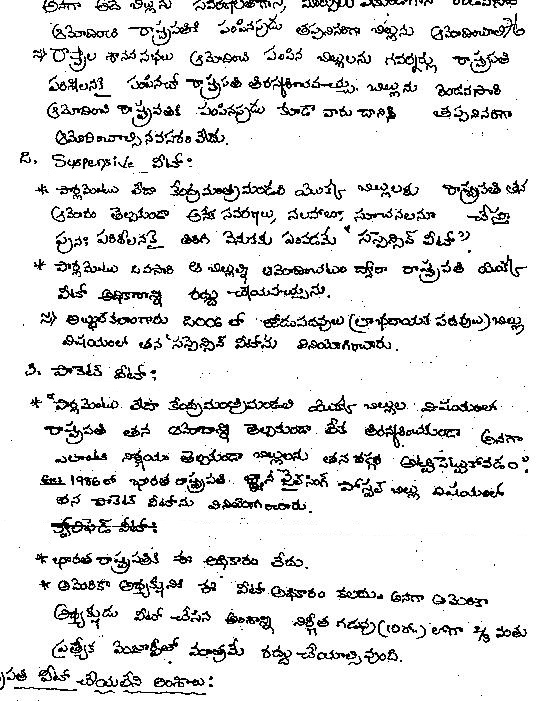 అనగా అదే బిల్లును
ఆమోదించి రాష్ట్రపతికి పంపినప్పుడు తప్పనిసరిగా బిల్లును ఆమోదించాల్సి
రాష్ట్రాల శాసనసభలు ఆమోదించి పంపిన బిల్లులను గవర్నర్లు రాష్ట్రపతి
పరిశీలనకై పంపినచో రాష్ట్రపతి తిరస్కరించవచ్చు. బిల్లును రెండవసారి
ఆమోదించి రాష్ట్రపతికి పంపినప్పుడు కూడా వారు దానికి తప్పనిసరిగా
ఆమోదించాల్సినవసరం లేదు.
2. Suspensive వీటో :
* పార్లమెంటు లేదా కేంద్రమంత్రిమండలి యొక్క బిల్లులకు రాష్ట్రపతి తన
ఆమోదం తెల్పకుండా అనేక సవరణలు, సలహాలు, సూచనలనూ చేస్తూ
పునః పరిశీలనకై తిరిగి వెనుకకు పంపడమే "సస్పెన్సివ్ వీటో".
* పార్లమెంటు రెండవసారి ఆ బిల్లును ఆమోదించటం ద్వారా రాష్ట్రపతి యొక్క
వీటో అధికారాన్ని రద్దు చేయవచ్చును.
అబ్దుల్ కలాంగారు 2006 లో జోడుపదవులు (లాభదాయక పదవులు) బిల్లు
విషయంలో తన సస్పెన్సివ్ వీటోను వినియోగించారు.
3. పాకెట్ వీటో :
* "పార్లమెంటు లేదా కేంద్రమంత్రిమండలి యొక్క బిల్లుల విషయంలో
రాష్ట్రపతి తన ఆమోదాన్ని తెల్పకుండా లేక తిరస్కరించకుండా అనగా
ఎలాంటి నిర్ణయం తెల్పకుండా బిల్లులను తన వద్దే అట్టిపెట్టుకోవడం."
1986 లో భారత రాష్ట్రపతి జ్ఞానీ జైల్ సింగ్ పోస్టల్ బిల్లు విషయంలో
తన పాకెట్ వీటోను వినియోగించారు.
క్వాలిఫైడ్ వీటో :
* భారత రాష్ట్రపతికి ఈ అధికారం లేదు.
* అమెరికా అధ్యక్షునికి ఈ వీటో అధికారం కలదు. అనగా అమెరికా
అధ్యక్షుడు వీటో చేసిన అంశాన్ని నిర్ణీత గడువు లోగా 2/3 వంతు
ప్రత్యేక మెజార్టీతో మాత్రమే రద్దు చేయాల్సివుంది.
వీటో చేయలేని అంశాలు :